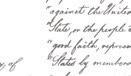 "against the United
"State, or the people o
"good faith, represen
"States by member
y, of